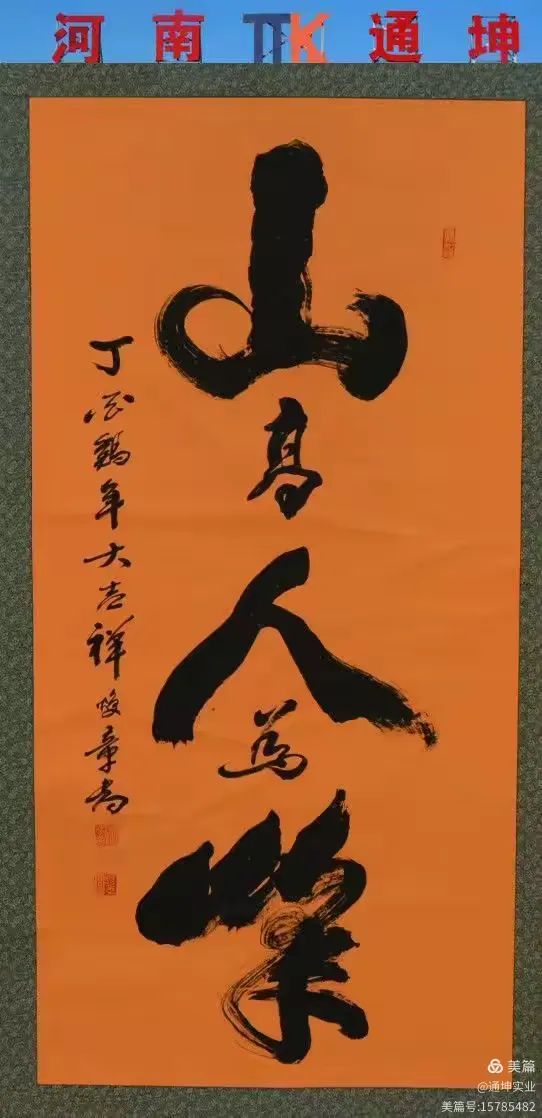 河南TK通坤
山高人為峯
丁酉鷄年大吉祥 章書
美篇
@通坤实业
美篇号:15785482